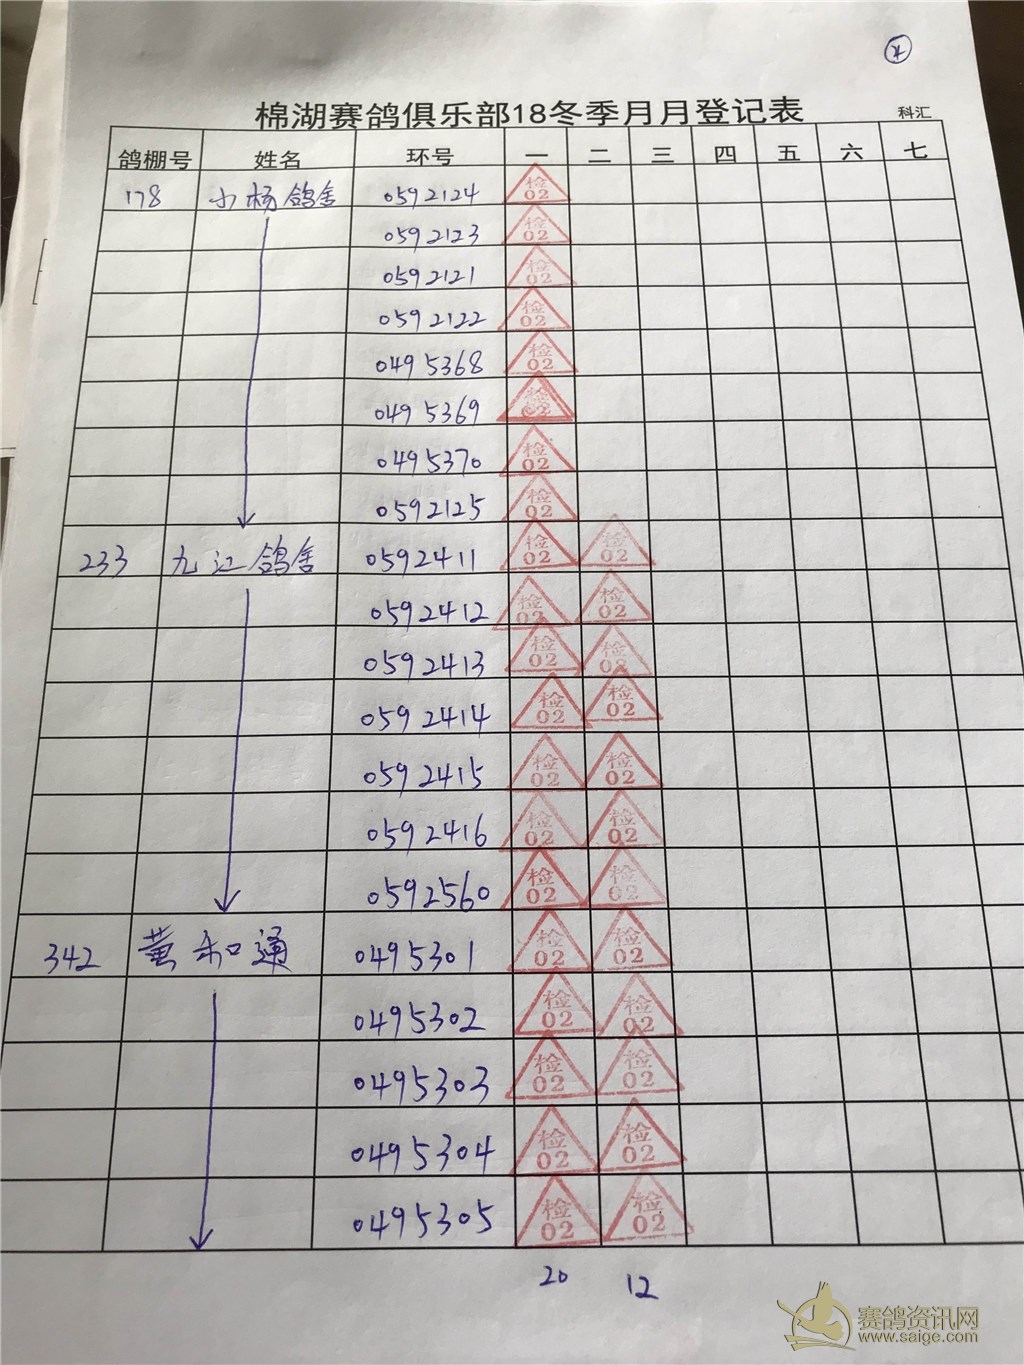 棉湖赛鸽俱乐部18冬季月月登记表
科汇
鸽棚号 姓名 环号 一 二 三 四 五 六 七
178 小杨鸽舍 0592124 检02
0592123 检02
0592121 检02
0592122 检02
0495368 检02
0495369 检02
0495370 检02
0592125 检02
233 九江鸽舍 0592411 检02 检02
0592412 检02 检02
0592413 检02 检02
0592414 检02 检02
0592415 检02 检02
0592416 检02 检02
0592560 检02 检02
342 黄和通 0495301 检02 检02
0495302 检02 检02
0495303 检02 检02
0495304 检02 检02
0495305 检02 检02
20 12
赛鸽资讯网
www.saige.com